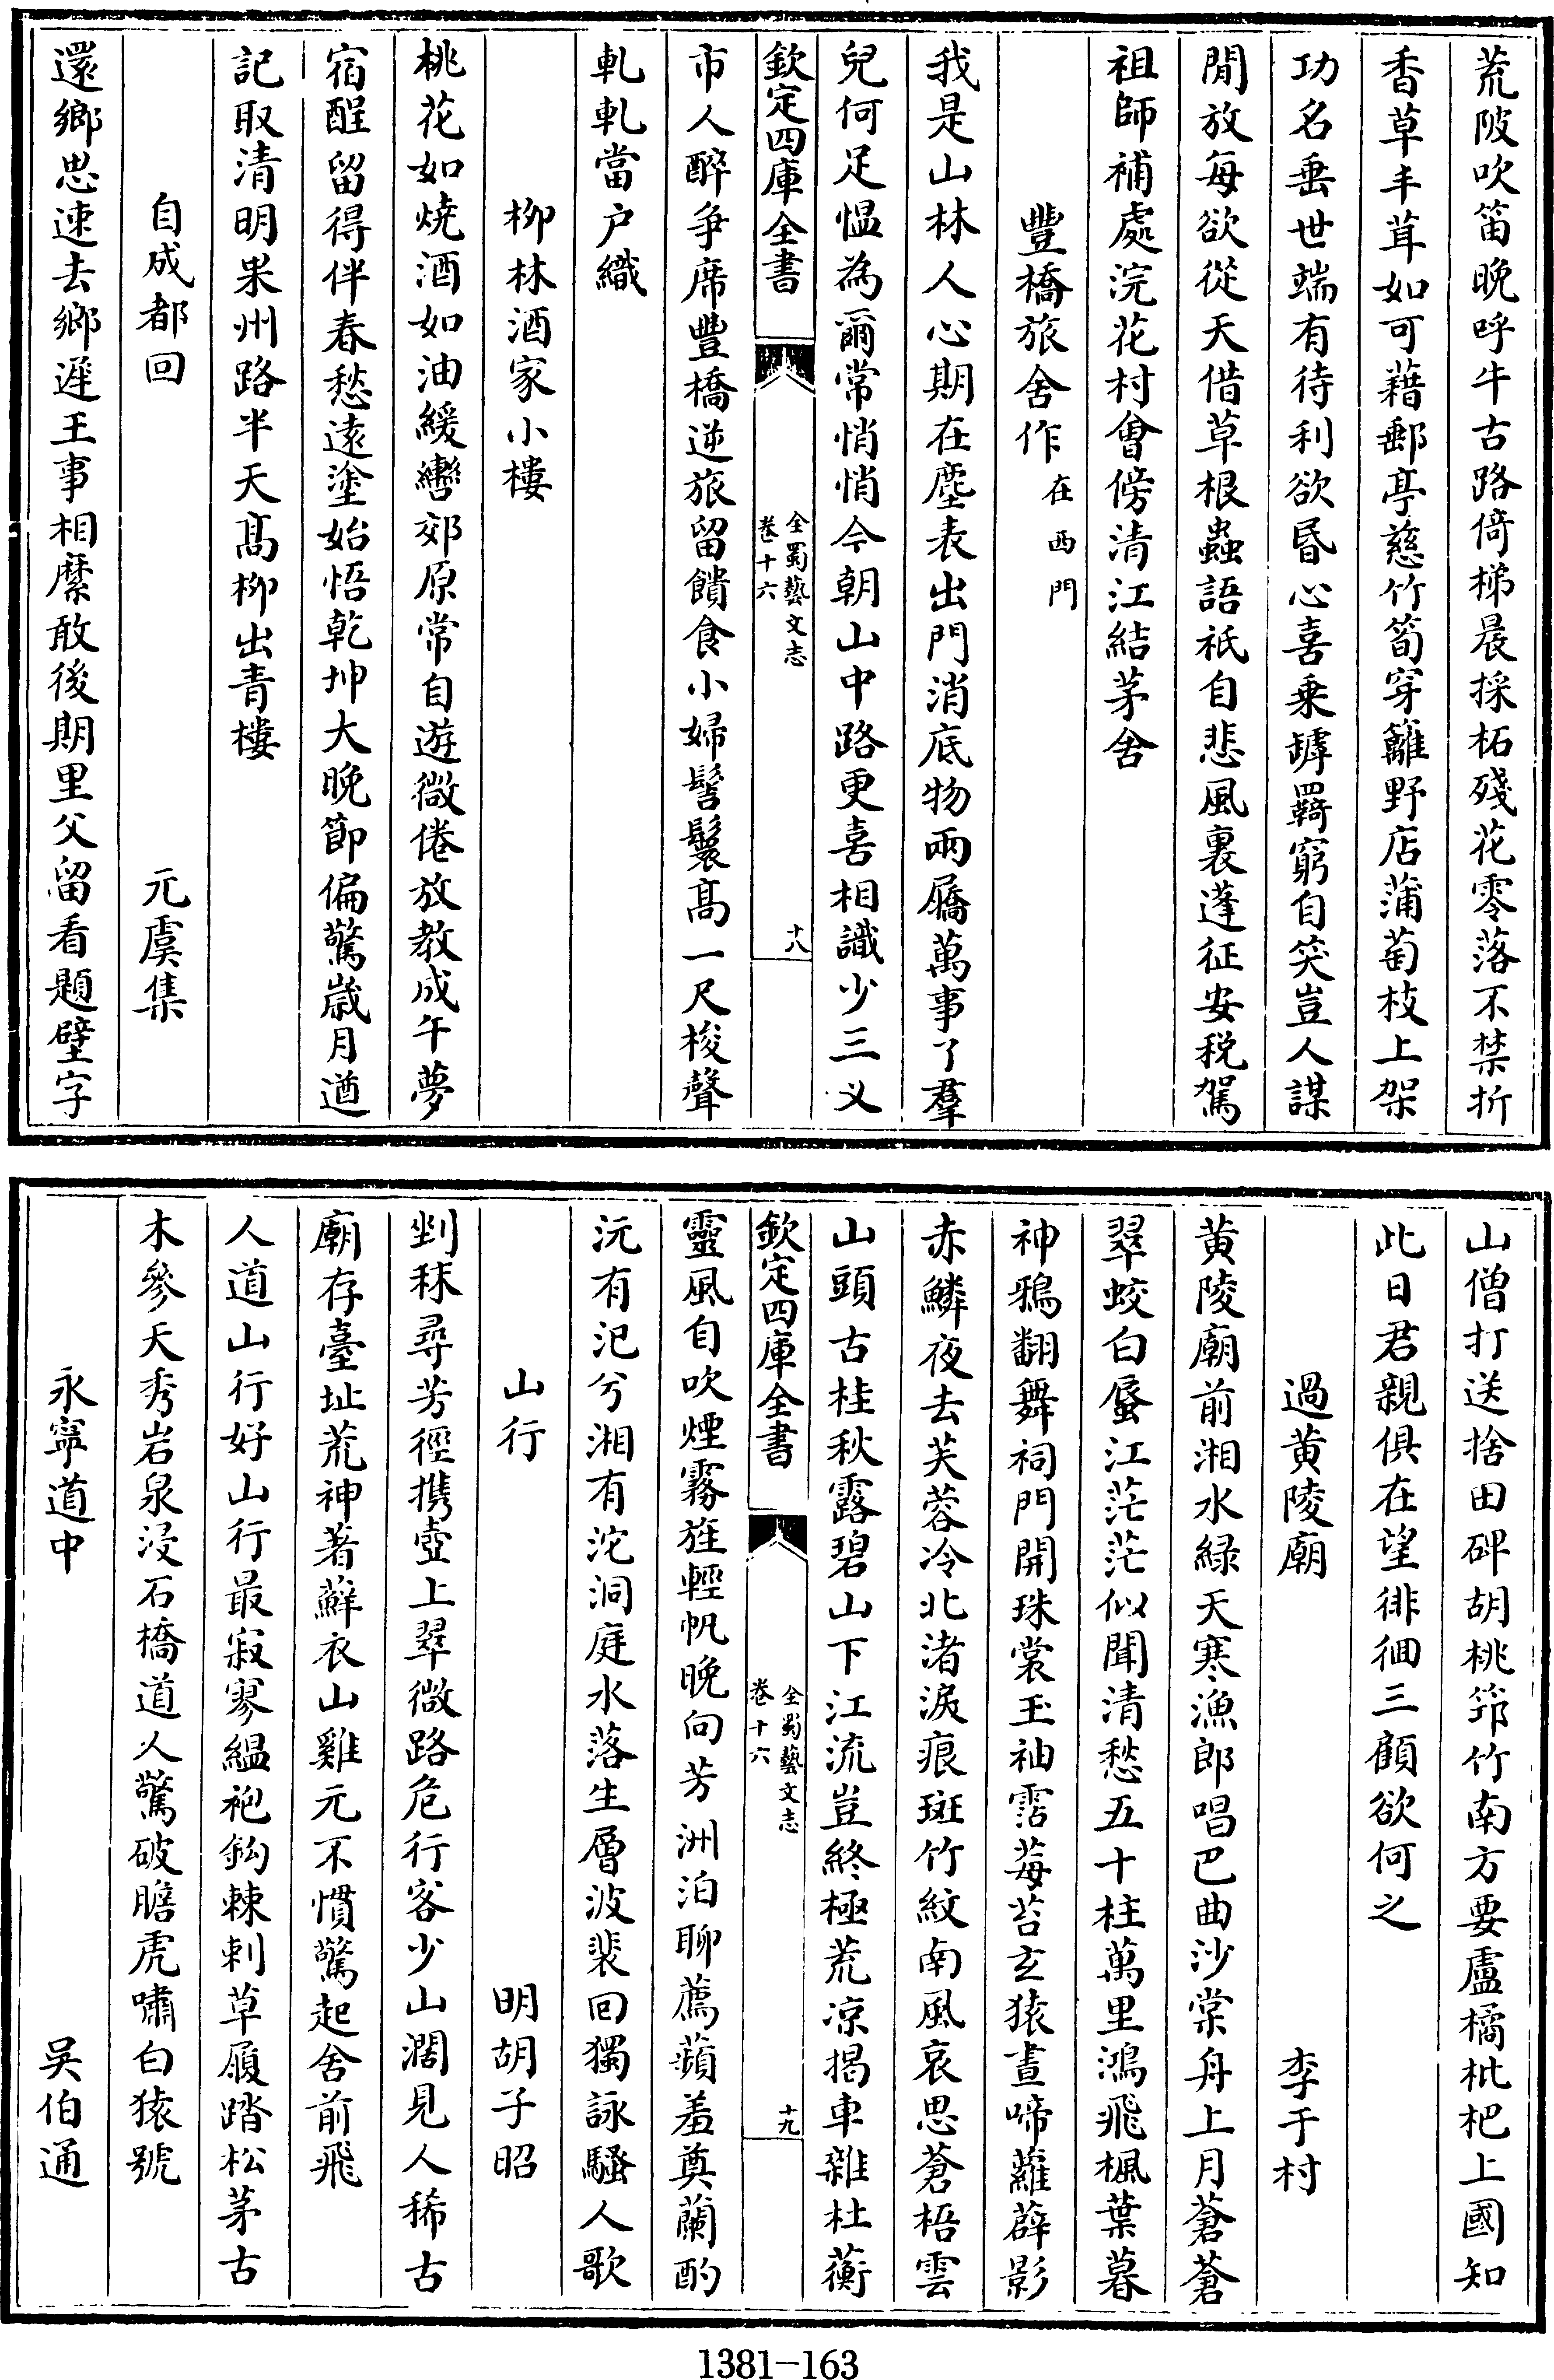 荒陂吹笛晚呼牛古路倚梯晨採柘殘花零落不禁折
香草丰茸如可藉郵亭慈竹筍穿籬野店蒲萄枝上架
功名垂世端有待利欲昏心喜乗罅羇窮自笑豈人謀
閒放每欲從天借草根蟲語祇自悲風裏蓬征安税駕
祖師補處浣花村會傍清江結茅舍
豐橋旅舍作在西門
我是山林人心期在塵表出門消底物兩屩萬事了羣
兒何足愠為爾常悄悄今朝山中路更喜相識少三义
欽定四庫全書
全蜀藝文志
卷十六
十八
市人醉争席豐橋逆旅留饋食小婦髻鬟髙一尺梭聲
軋軋當户織
柳林酒家小樓
桃花如燒酒如油緩轡郊原常自遊微倦放教成午夢
宿酲留得伴春愁遠塗始悟乾坤大晚節偏驚歳月遒
記取清明果州路半天髙柳出青樓
自成都回
元虞集
還鄉思速去鄉遲王事相縻敢後期里父留看題壁字
山僧打送捨田碑胡桃筇竹南方要盧橘枇杷上國知
此日君親俱在望徘徊三顧欲何之
過黄陵廟
李于村
黄陵廟前湘水緑天寒漁郎唱巴曲沙棠舟上月蒼蒼
翠蛟白蜃江茫茫似聞清愁五十柱萬里鴻飛楓葉暮
神鴉翻舞祠門開珠裳玉袖霑莓苔玄猿晝啼蘿薜影
赤鱗夜去芙蓉冷北渚淚痕斑竹紋南風哀思蒼梧雲
山頭古桂秋露碧山下江流豈終極荒凉揭車雜杜蘅
欽定四庫全書
全蜀藝文志
卷十六
十九
靈風自吹煙霧旌輕帆晚向芳洲泊聊薦蘋羞奠蘭酌
沅有汜兮湘有沱洞庭水落生層波裴回獨詠騷人歌
山行
明胡子昭
剉秣尋芳徑携壺上翠微路危行客少山濶見人稀古
廟存臺址荒神著蘚衣山雞元不慣驚起舍前飛
人道山行好山行最寂寥緼袍鈎棘刺草履踏松茅古
木參天秀岩泉浸石橋道人驚破膽虎嘯白猿號
永寧道中
吳伯通
1381-163